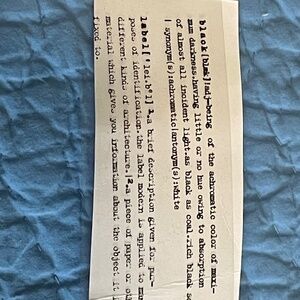 black[blæk]adj-being of the achromatic color of maxi-
mum darkness.having little or no hue owing to absorption
of almost all incident light.as black as coal.rich black so
| synonym(s):achromatic|antonym(s):white
label['leibᵊl] 1.a brief description given for pur-
poses of identification.the label modern is applied to many
different kinds of architecture.|2.a piece of paper or oth
material which gives you information about the object it i
fixed to.